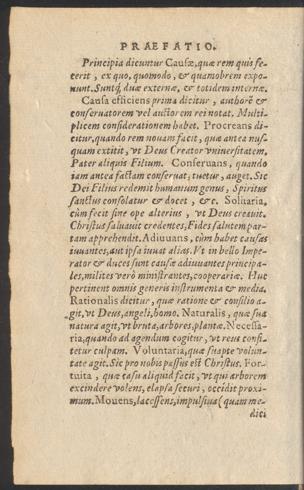 PRAEFATIO.
Principia dicuntur Causæ, quæ rem quis fe-
cerit, ex quo, quomodo, & quamobrem expo-
nunt. Suntq́ duæ externæ, & totidem internæ.
Causa efficiens prima dicitur, authorē &
conseruatorem vel auctorem rei notat. Multi-
plicem considerationem habet. Procreans di-
citur, quando rem nouam facit, quæ antea nus-
quam extitit, vt Deus Creator vniuersitatem.
Pater aliquis Filium. Conseruans, quando
iam antea factam conseruat, tuetur, auget. Sic
Dei Filius redemit humanum genus, Spiritus
sanctus consolatur & docet, &c. Solitaria,
cùm fecit sine ope alterius, vt Deus creauit.
Christus saluauit credentes, Fides salutem par-
tam apprehendit. Adiuuans, cùm habet causas
iuuantes, aut ipsa iuuat alias. Vt in bello Impe-
rator & duces sunt causæ adiuuantes principa-
les, milites verò ministrantes, cooperariæ. Huc
pertinent omnis generis instrumenta & media.
Rationalis dicitur, quæ ratione & consilio a-
git, vt Deus, angeli, homo. Naturalis, quæ sua
natura agit, vt bruta, arbores, plantæ. Necessa-
ria, quando ad agendum cogitur, vt reus confi-
tetur culpam. Voluntaria, quæ suapte volun-
tate agit. Sic pro nobis passus est Christus. For-
tuita, quæ casu aliquid facit, vt qui arborem
excindere volens, elapsa securi, occidit proxi-
mum. Mouens, lacessens, impulsiua (quam me-
dici